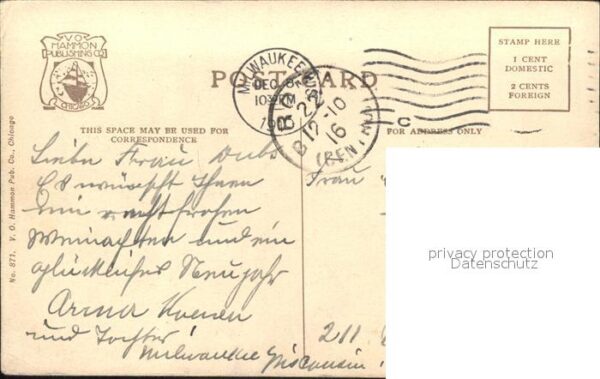 V.O.
HAMMON
PUBLISHING CO.
CHICAGO
POST CARD
MILWAUKEE
DEC
STAMP HERE
1 CENT
DOMESTIC
2 CENTS
FOREIGN
THIS SPACE MAY BE USED FOR
CORRESPONDENCE
FOR ADDRESS ONLY
No. 871. V. O. Hammon Pub. Co., Chicago
Liebe Frau
Es wünscht Ihnen
ein recht frohen
Weinachten und ein
glückliches Neujahr
Anna
und Tochter
Milwaukee Wisconsin
Frau
211
privacy protection
Datenschutz